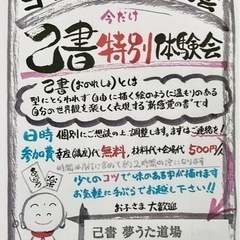 今だけ
己書特別体験会
己書(おのれしょ)とは
型にとらわれず自由に描く絵のように温もりのある
自分の世界観を楽しく表現する"新感覚の書"です
日時 個別にご想談の上、調整します。まずはご連絡を!
参加費 幸座(講座)代 無料、材料代+会場代 500円/人
少しのコツで味のある字が描けます
お気軽に手ぶらでお越し下さい!!
お子さま大歓迎
己書 夢うた道場